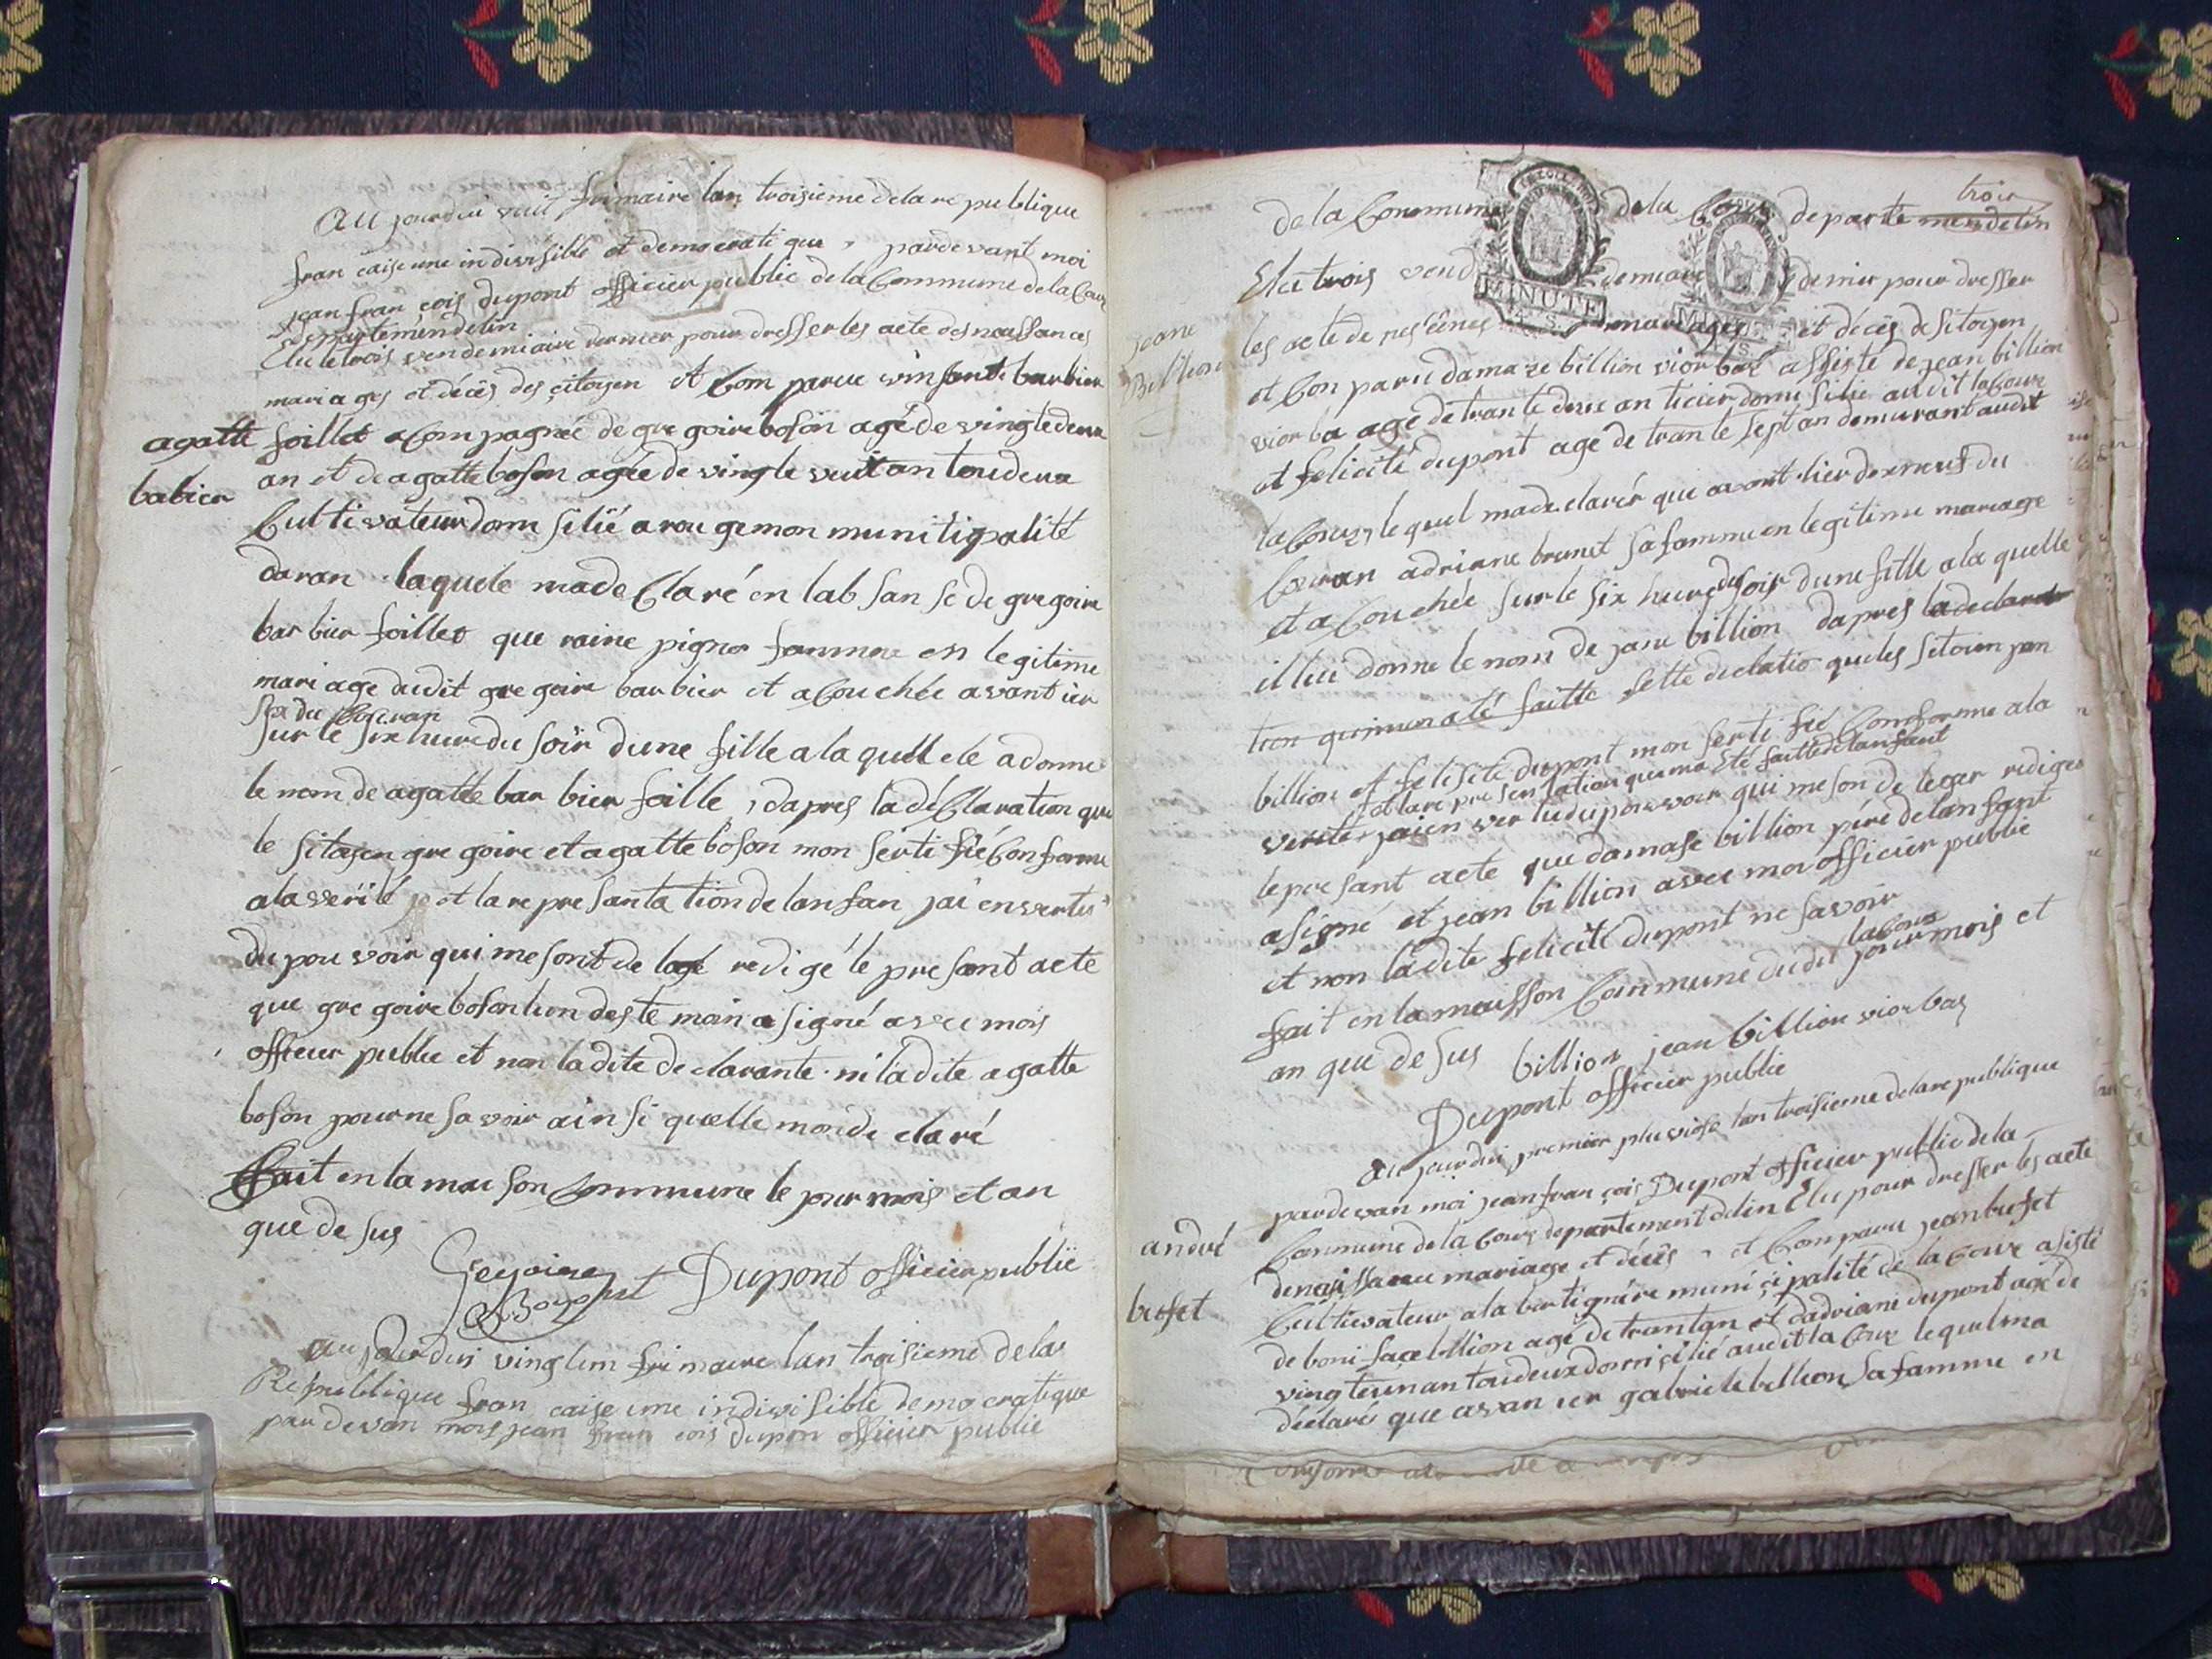 Au jourdui vuit frimaire lan troisieme dela re publique
fran caise une indivisible et democrati que, pardevant moi
jean fran cois dupont officier public dela Commune dela Coux
departemendelin
Elu le trois vendemiaire dernier pour dresser les acte des naissances
maria ges et décés des citoyen et Com parue
agatte
babier
foillet acompagnée de gre goire boson agé de vingtedeux
an et de agatte boson agée de vingte vuit an toudeux
Cultivateur domi silié a rou gemon munitipalité
daran laquele made Claré en lab san se de gregoire
bar bier foillet que raine pigner famme en legitime
mari age dudit gre goire bar bier et a Couchée avant ier
six du Couran
sur le six hure du soir dune fille a la quelle ele a donné
le nom de agatte bar bier foille, dapres la dé Claration que
le sitoyen gre goire et agatte boson mon serti fié Conforme
ala verité et la re pre santa tion de lanfan jai en vertu
du pou voir qui me sont de legé redigé le presant acte
que gre goire boson lun des te moin a signé avec mois
officier public et non ladite declarante ni ladite agatte
boson pour ne sa voir ain si quelle mon de claré
Fait en la mai son Commune le jour mois et an
que de sus
Gregoire Dupont officier public
au jourdui vingt un fri maire lan troisieme dela
Republique fran caise une indivi sible demo cratique
par devan mois jean fran cois dupon officier public
trois
de la Commune dela Coux departe mendelin
Elu trois vendemiaire dernier pour dresser
jeane
Billion
les acte de mariages et décés de sitoyen
et Com paru damaze billion vior bas assisté de jean billion
vior ba agé de trante deux an domi silié audit la Coux
et felicité dupont agé de trante sept an demurant audit
la Coux, le quel made clarér que avant hier dixneuf du
Couran adriane brunet sa famme en legitime mariage
et a Couchée sur le six hure du soir dune fille a la quelle
il lui donne le nom de jane billion dapres la declara
tion quimma eté faitte sette declatio que les sitoien jan
billion et felisité dupont mon serti fié Comforme ala
et lare pre sentation quima eté faitte delanfant
verité jaien vertu du pouvoir qui me son de leger rediger
le pre sant acte que damase billion pére de lanfant
a signé et jean billion avec moi officier public
et non ladite felicité dupont ne savoir
la Coux
fait en la maisson Commune dudit jour mois et
an que de sus billion jean billion vior bas
Dupont officier public
au jourdui premier pluviose lan troisieme dela re publique
pardevan moi jean fran çois Dupont officier public de la
andré
bufet
Commune de la Coux departement delin Elu pour dresser les acte
denaissance mariage et décés, et Comparu jean bufet
Cultivateur a la bertignére muni çi palité de la Coux asisté
de boni face billion agé de trantan et dadriane dupont agé de
vingt eun an toudeux domi silié audit la Coux lequelma
déclaré que avan ier gabriele billion sa famme en